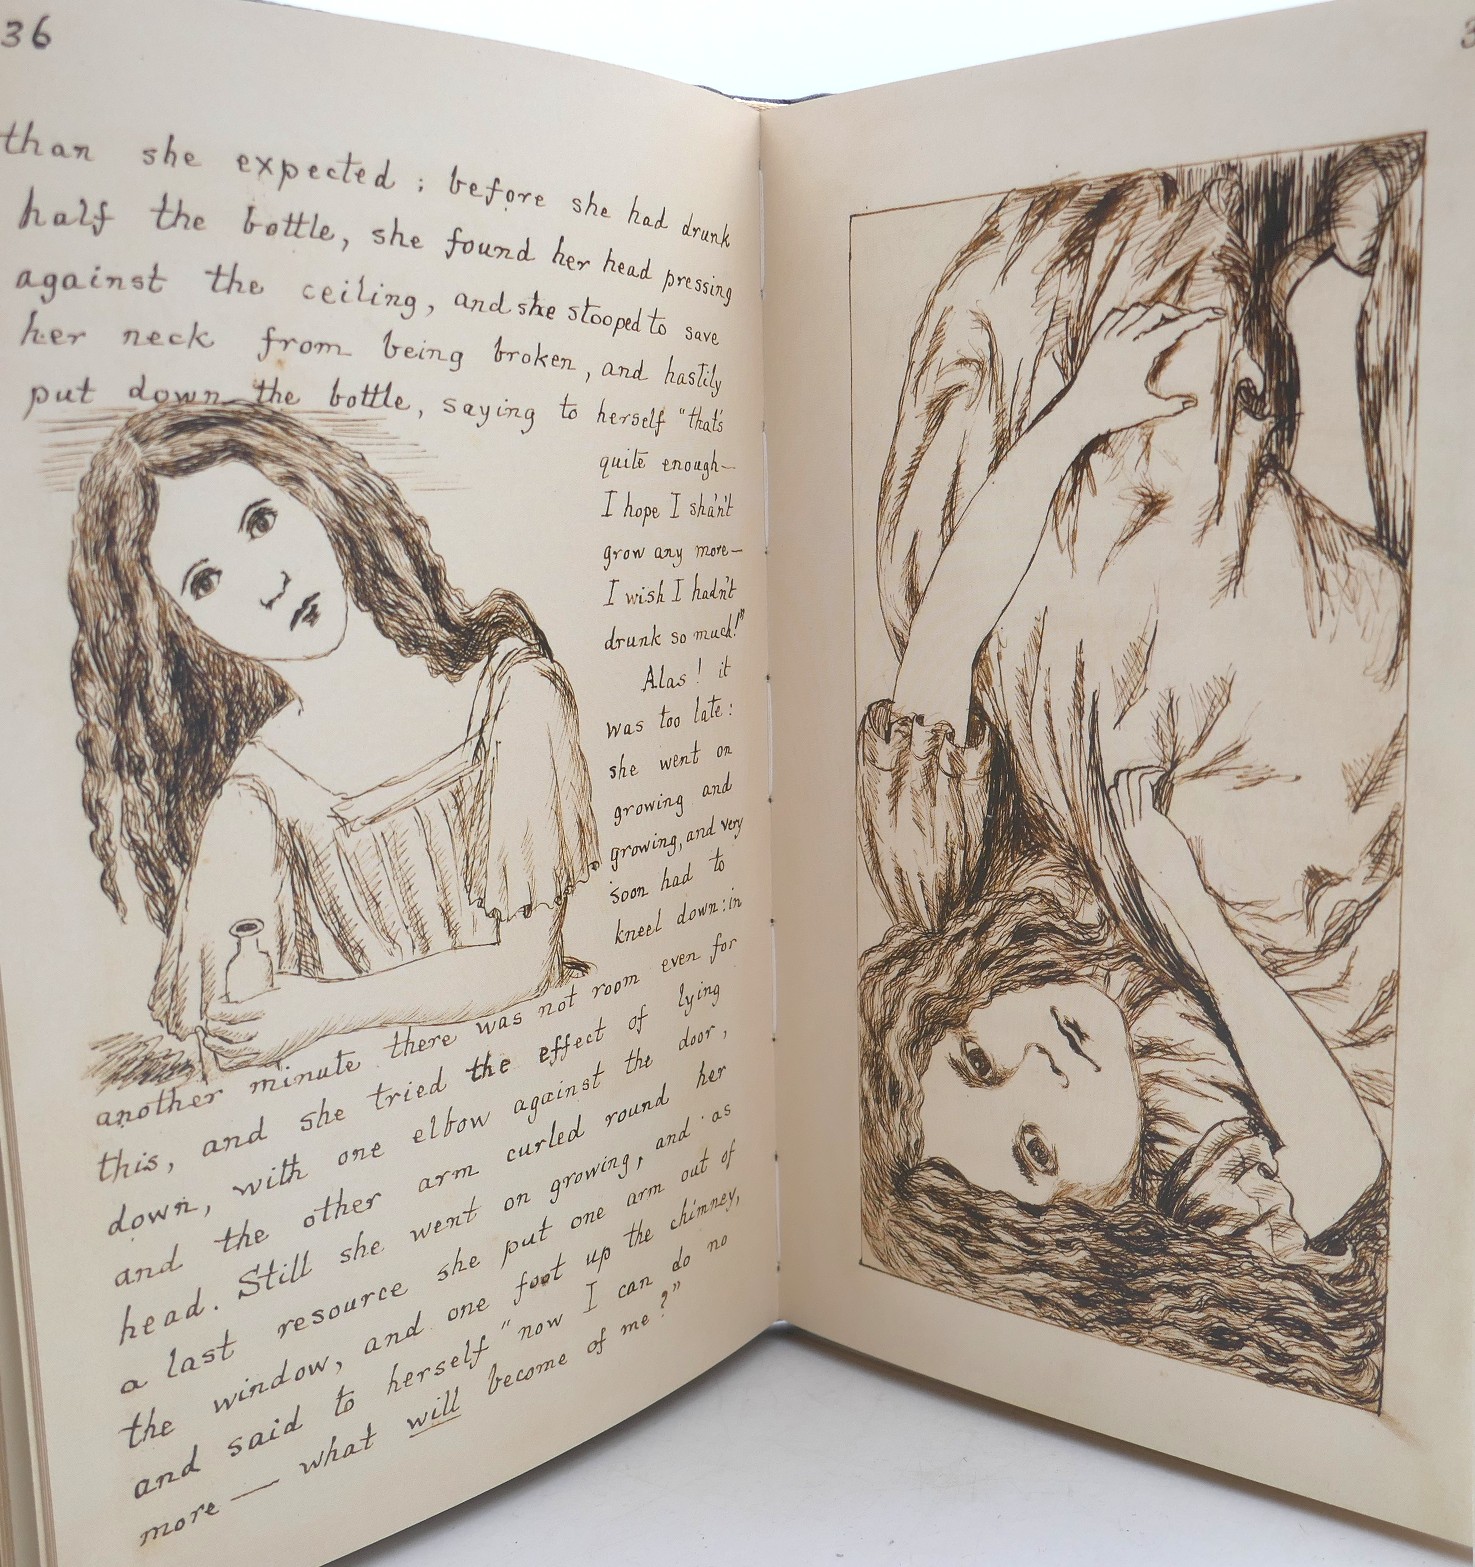 36
than she expected; before she had drunk
half the bottle, she found her head pressing
against the ceiling, and she stooped to save
her neck from being broken, and hastily
put down the bottle, saying to herself "that's
quite enough—
I hope I sha'n't
grow any more—
I wish I hadn't
drunk so much!"
Alas! it
was too late:
she went on
growing and
growing, and very
soon had to
kneel down: in
another minute there was not room even for
this, and she tried the effect of lying
down, with one elbow against the door,
and the other arm curled round her
head. Still she went on growing, and as
a last resource she put one arm out of
the window, and one foot up the chimney,
and said to herself "now I can do no
more — what will become of me?"
3